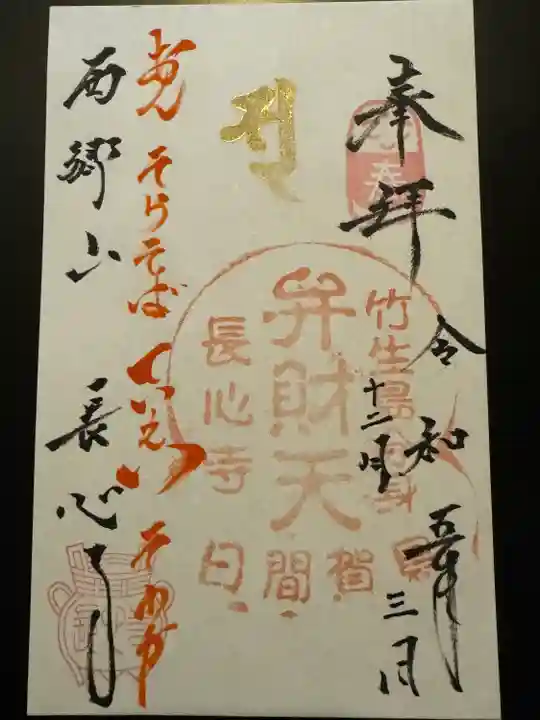 奉拝
令和五年
十二月
三日
竹生島分身
弁財天
長心寺
日間賀島
おん そらそばていえい そわか
西郷山 長心寺